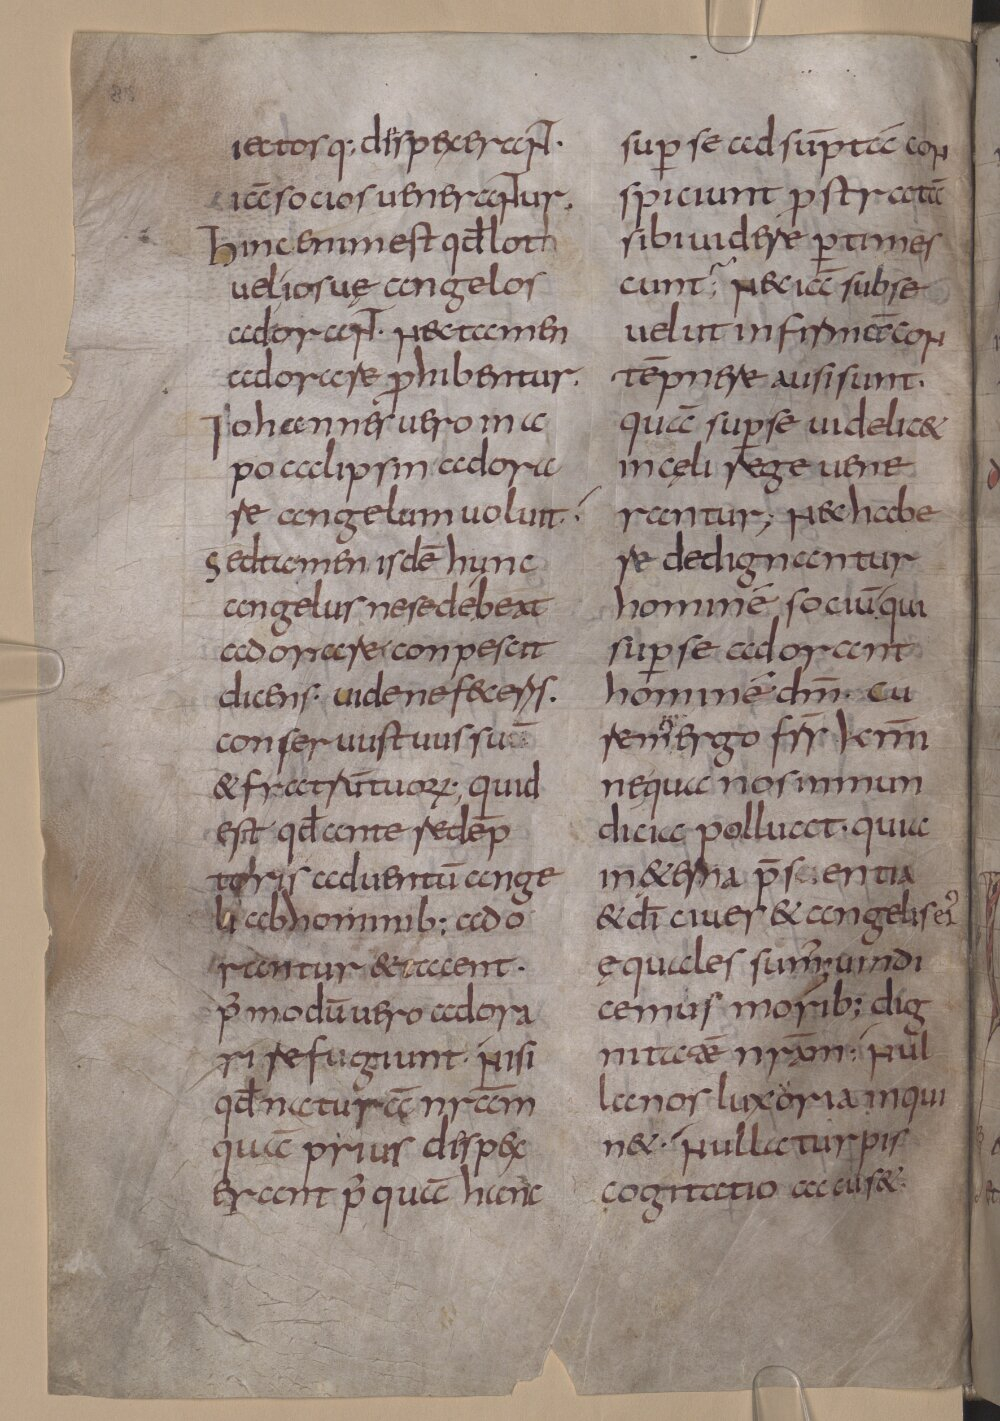 iectos q; dispexerant.
iā socios uenerantur.
Hinc enim est qđ loth
uel iosuę angelos
adorant. nec tamen
adorare phibentur.
Iohannes uero in a
pocalipsin adora
re angelum uoluit.
Sed tamen isdē hunc
angelus ne se debeat
adorare conpescit
dicens. uide ne feceris.
conseruus tuus sum
& fratrū tuoꝝ; quid
est qđ ante redēp
toris aduentū ange
li ab hominib; ado
rantur & tacent.
p̄modū uero adora
ri refugiunt. nisi
qđ naturā nrām
quā prius dispex
erant p̄quā hanc
sup se adsūptā con
spiciunt pstratā
sibi uidere ptimes
cunt; nec iā sub se
uelut infirmā con
tēpnere ausi sunt.
quā sup se uidelic&
in cęli rege uene
rantur; nec habe
re dedignantur
hominē sociū qui
sup se adorant
hominē dm̄. cu
rem ergo frs̄ kmi
nequa nos inmun
dicia polluat. qui
in &erna p̄scientia
& dī ciues & angelis eī
ęquales sum; uindi
cemus morib; dig
nitatē nrām. nul
la nos luxoria inqui
n&. nulla turpis
cogitatio accus&.